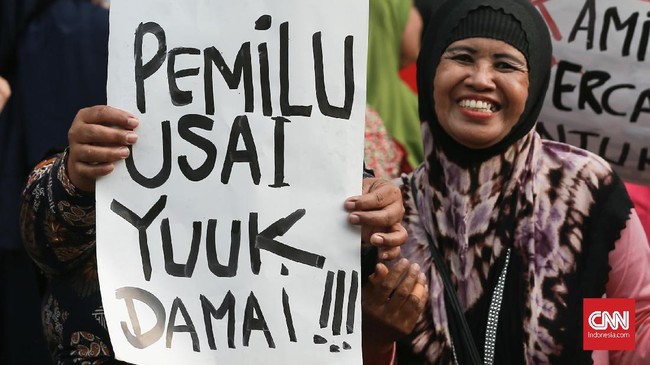 PEMILU
USAI
YUUK
DAMAI!!!
KAMI
ERCA
NTUK
CNN
Indonesia.com